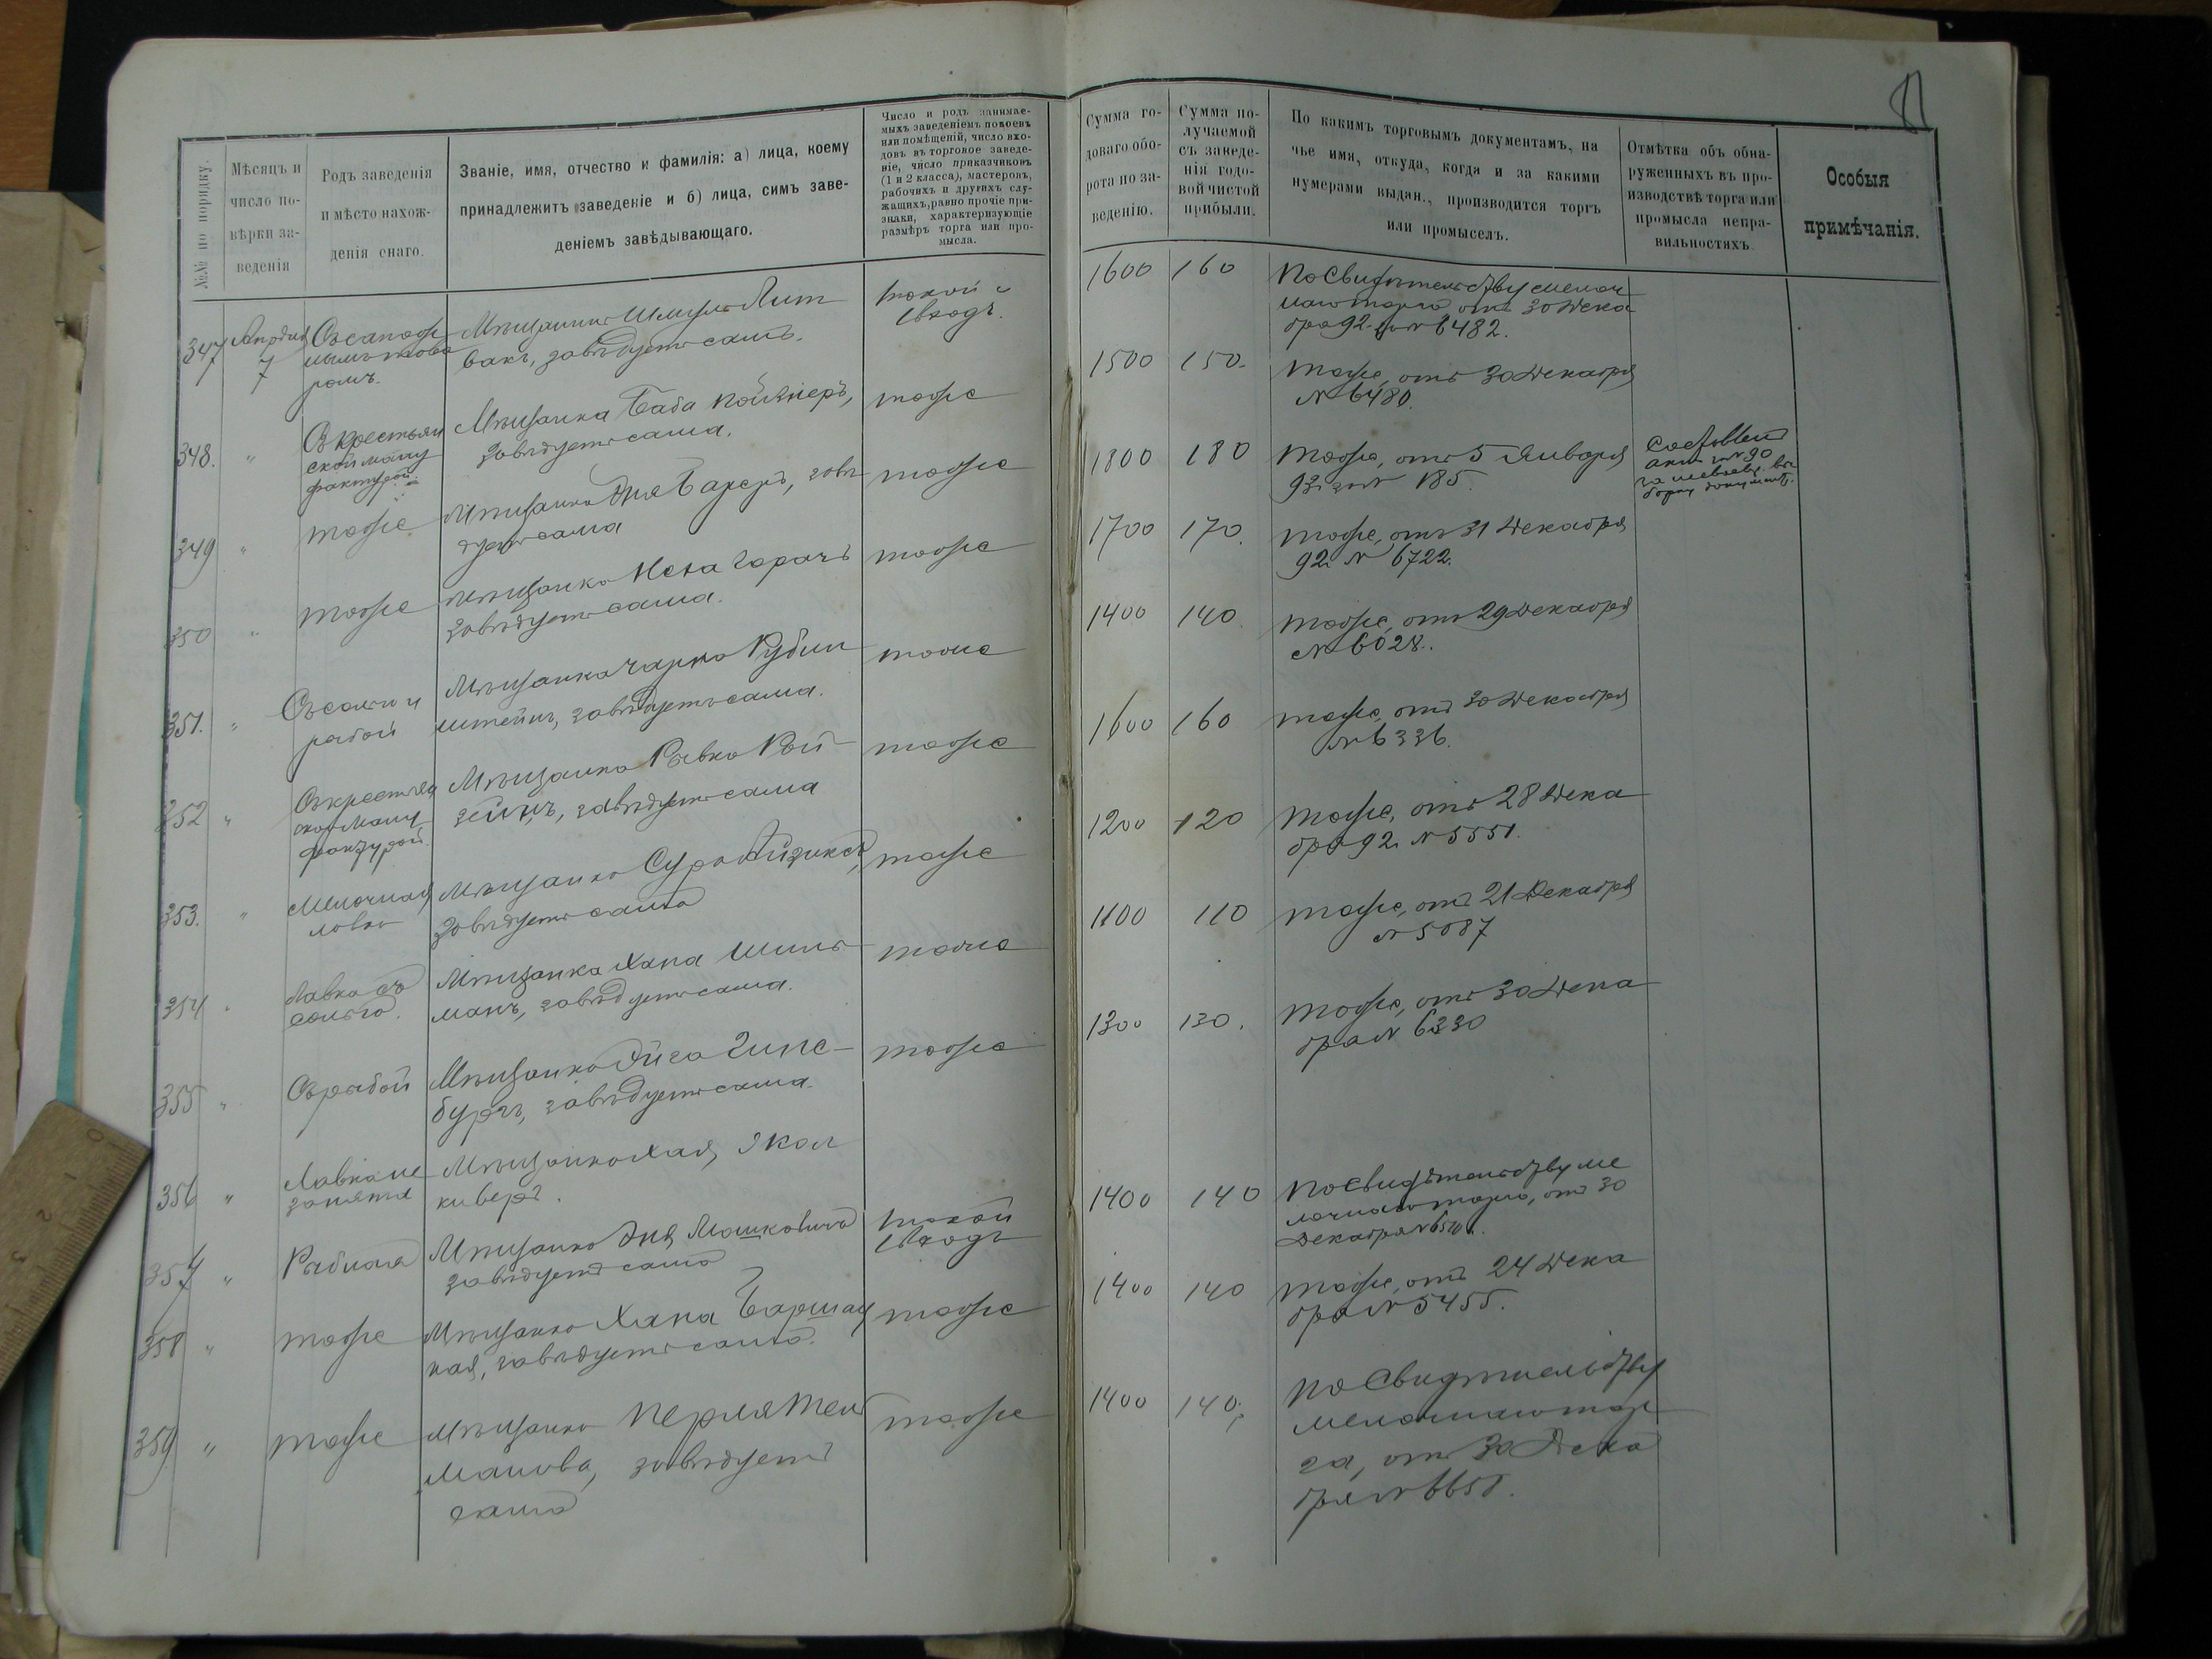 №№ по порядку.
Мѣсяцъ и
число по-
вѣрки за-
веденія
Родъ заведенія
и мѣсто нахож-
денія онаго.
Званіе, имя, отчество и фамилія: а) лица, коему
принадлежитъ заведеніе и б) лица, симъ заве-
деніемъ завѣдывающаго.
Число и родъ занимае-
мыхъ заведеніемъ покоевъ
или помѣщеній, число вхо-
довъ въ торговое заведе-
ніе, число приказчиковъ
(1 и 2 класса), мастеровъ,
рабочихъ и другихъ слу-
жащихъ, равно прочіе при-
знаки, характеризующіе
размѣръ торга или про-
мысла.
Сумма го-
доваго обо-
рота по за-
веденію.
Сумма по-
лучаемой
съ заведе-
нія годо-
вой чистой
прибыли.
По какимъ торговымъ документамъ, на
чье имя, откуда, когда и за какими
нумерами выдан., производится торгъ
или промыселъ.
Отмѣтка объ обна-
руженныхъ въ про-
изводствѣ торга или
промысла непра-
вильностяхъ.
Особыя
примѣчанія.
347
Апрѣля
7
Съ сапож
нымъ това
ромъ.
Мѣщанинъ Шмуль Лит
вакъ, завѣдуетъ самъ.
1 покой и
1 входъ.
1600
160
По Свидѣтельству мелоч
наго торга отъ 30 Дека
бря 92 г. за № 6482.
348.
"
Съ крестьян
ской ману
фактурой.
Мѣщанка Баба Койзнеръ,
завѣдуетъ сама.
тоже
1500
150.
тоже, отъ 30 Декабря
№ 6480.
349
"
тоже
Мѣщанка Эня Бакеръ, завѣ
дуетъ сама
тоже
1800
180
тоже, отъ 5 Января
93 г. за № 185.
Составленъ
актъ за № 90
за несвоевр. вы
борку документ.
350
"
тоже
Мѣщанка Неха Горачъ
завѣдуетъ сама.
тоже
1700
170.
тоже, отъ 31 Декабря
92 г. № 6722.
351.
"
Съ солью и
рыбой
Мѣщанка Чарна Рубин
штейнъ, завѣдуетъ сама.
тоже
1400
140.
тоже, отъ 29 Декабря
№ 6028.
352
"
Съ крестьян
ской ману
фактурой.
Мѣщанка Ривка Рой
зейнъ, завѣдуетъ сама
тоже
1600
160
тоже, отъ 30 Декабря
№ 6336.
353.
"
Мелочная
лавка
Мѣщанка Сура Айзиксъ,
завѣдуетъ сама
тоже
1200
120
тоже, отъ 28 Дека
бря 92 г. № 5551.
354
"
Лавка съ
солью.
Мѣщанка Хана Шиль
манъ, завѣдуетъ сама.
тоже
1100
110
тоже, отъ 21 Декабря
№ 5087
355
"
Съ рыбой
Мѣщанка Эйга Гинс-
бургъ, завѣдуетъ сама.
тоже
1300
130.
тоже, отъ 30 Дека
бря № 6330
356
"
Лавка не
занята
Мѣщанка Хая Школ
киверъ.
357
"
Рыбная
Мѣщанка Эня Машковичъ
завѣдуетъ сама
1 покой
1 входъ
1400
140
По Свидѣтельству ме
лочнаго торга, отъ 30
Декабря № 6510.
358
"
тоже
Мѣщанка Хана Баршац
кая, завѣдуетъ сама.
тоже
1400
140
тоже, отъ 24 Дека
бря № 5455.
359
"
тоже
Мѣщанка Перля Теп
манова, завѣдуетъ
сама
тоже
1400
140.
По Свидѣтельству
мелочнаго тор
га, отъ 30 Дека
бря № 6658.